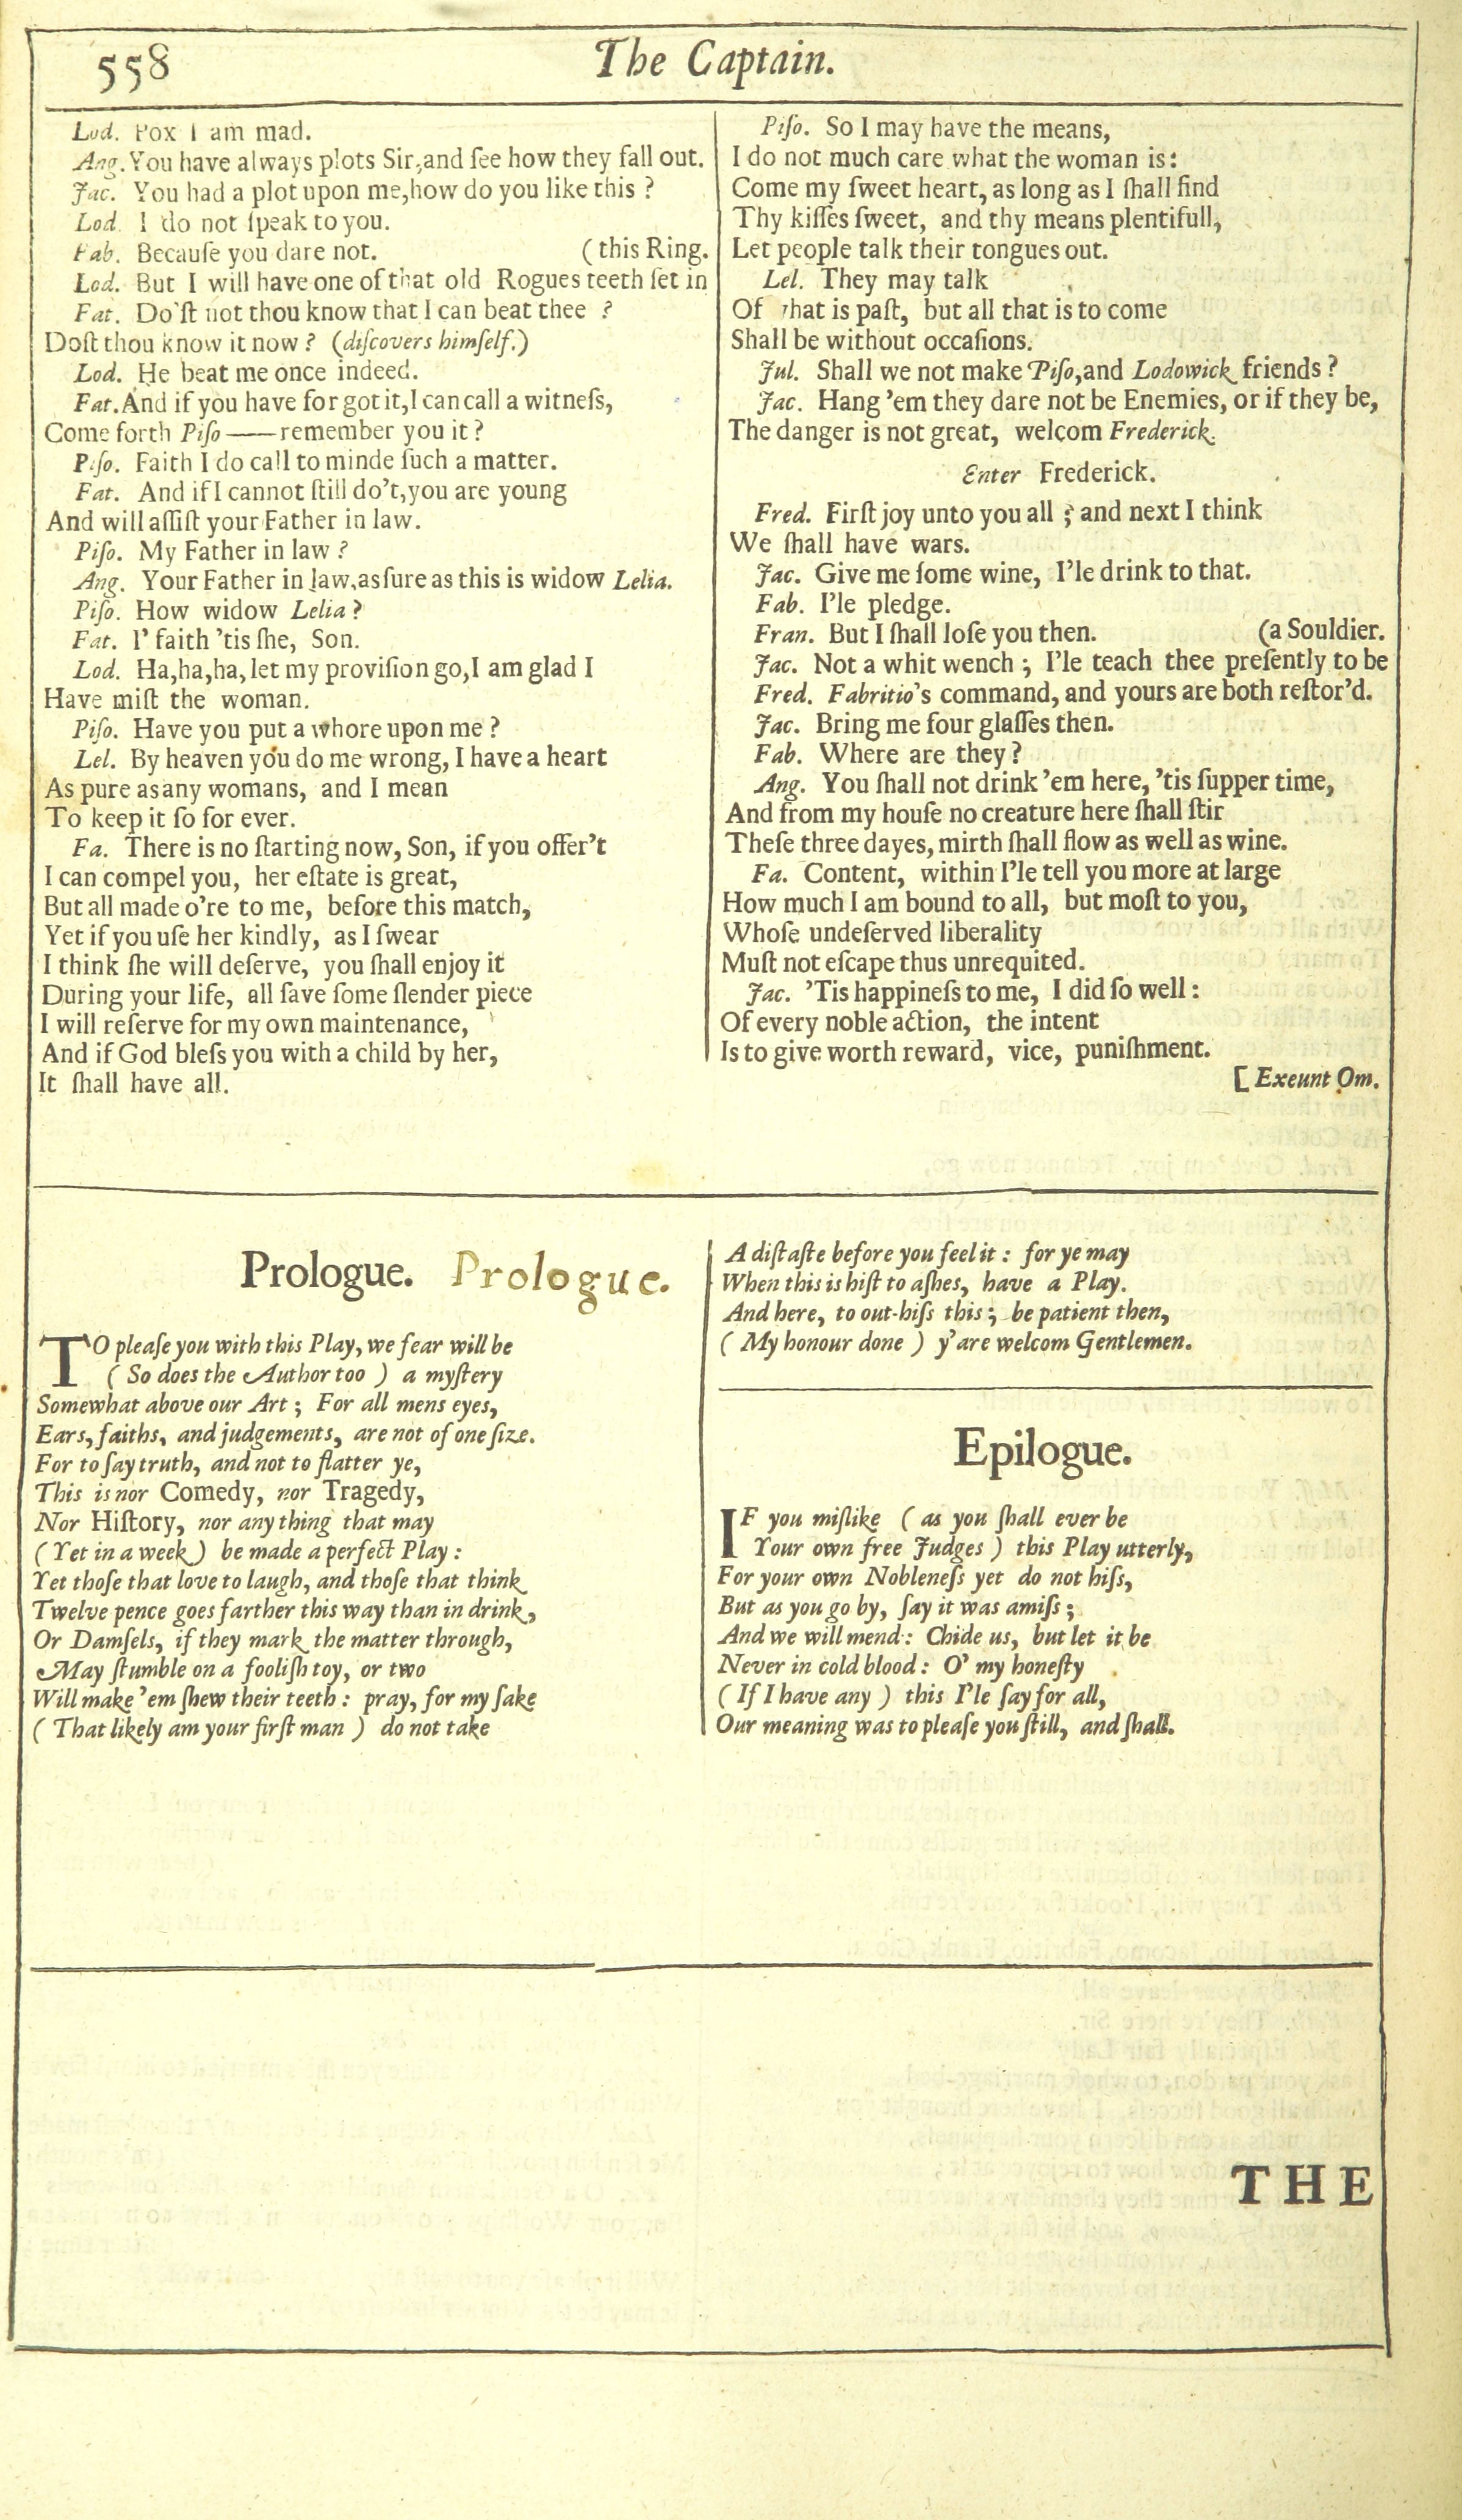 558
The Captain.
Lod. Pox I am mad.
Ang. You have always plots Sir, and ſee how they fall out.
Jac. You had a plot upon me, how do you like this ?
Lod. I do not ſpeak to you.
Fab. Becauſe you dare not. (this Ring.
Lod. But I will have one of that old Rogues teeth ſet in
Fat. Do'ſt not thou know that I can beat thee ?
Doſt thou know it now ? (diſcovers himſelf.)
Lod. He beat me once indeed.
Fat. And if you have forgot it, I can call a witneſs,
Come forth Piſo——remember you it ?
Piſo. Faith I do call to minde ſuch a matter.
Fat. And if I cannot ſtill do't, you are young
And will aſſiſt your Father in law.
Piſo. My Father in law ?
Ang. Your Father in law, as ſure as this is widow Lelia.
Piſo. How widow Lelia ?
Fat. I' faith 'tis ſhe, Son.
Lod. Ha, ha, ha, let my proviſion go, I am glad I
Have miſt the woman.
Piſo. Have you put a whore upon me ?
Lel. By heaven you do me wrong, I have a heart
As pure as any womans, and I mean
To keep it ſo for ever.
Fa. There is no ſtarting now, Son, if you offer't
I can compel you, her eſtate is great,
But all made o're to me, before this match,
Yet if you uſe her kindly, as I ſwear
I think ſhe will deſerve, you ſhall enjoy it
During your life, all ſave ſome ſlender piece
I will reſerve for my own maintenance,
And if God bleſs you with a child by her,
It ſhall have all.
Piſo. So I may have the means,
I do not much care what the woman is :
Come my ſweet heart, as long as I ſhall find
Thy kiſſes ſweet, and thy means plentifull,
Let people talk their tongues out.
Lel. They may talk
Of what is paſt, but all that is to come
Shall be without occaſions.
Jul. Shall we not make Piſo, and Lodowick friends ?
Jac. Hang 'em they dare not be Enemies, or if they be,
The danger is not great, welcom Frederick.
Enter Frederick.
Fred. Firſt joy unto you all ; and next I think
We ſhall have wars.
Jac. Give me ſome wine, I'le drink to that.
Fab. I'le pledge.
Fran. But I ſhall loſe you then. (a Souldier.
Jac. Not a whit wench ; I'le teach thee preſently to be
Fred. Fabritio's command, and yours are both reſtor'd.
Jac. Bring me four glaſſes then.
Fab. Where are they ?
Ang. You ſhall not drink 'em here, 'tis ſupper time,
And from my houſe no creature here ſhall ſtir
Theſe three dayes, mirth ſhall flow as well as wine.
Fa. Content, within I'le tell you more at large
How much I am bound to all, but moſt to you,
Whoſe undeſerved liberality
Muſt not eſcape thus unrequited.
Jac. 'Tis happineſs to me, I did ſo well :
Of every noble action, the intent
Is to give worth reward, vice, puniſhment.
[ Exeunt Om.
Prologue. Prologue.
TO pleaſe you with this Play, we fear will be
( So does the Author too ) a myſtery
Somewhat above our Art ; For all mens eyes,
Ears, faiths, and judgements, are not of one ſize.
For to ſay truth, and not to flatter ye,
This is nor Comedy, nor Tragedy,
Nor Hiſtory, nor any thing that may
( Yet in a week ) be made a perfect Play :
Yet thoſe that love to laugh, and thoſe that think
Twelve pence goes farther this way than in drink,
Or Damſels, if they mark the matter through,
May ſtumble on a fooliſh toy, or two
Will make 'em ſhew their teeth : pray, for my ſake
( That likely am your firſt man ) do not take
A diſtaſte before you feel it : for ye may
When this is hiſt to aſhes, have a Play.
And here, to out-hiſs this ; be patient then,
( My honour done ) y'are welcom Gentlemen.
Epilogue.
IF you miſlike ( as you ſhall ever be
Your own free Judges ) this Play utterly,
For your own Nobleneſs yet do not hiſs,
But as you go by, ſay it was amiſs ;
And we will mend : Chide us, but let it be
Never in cold blood : O' my honeſty
( If I have any ) this I'le ſay for all,
Our meaning was to pleaſe you ſtill, and ſhall.
THE